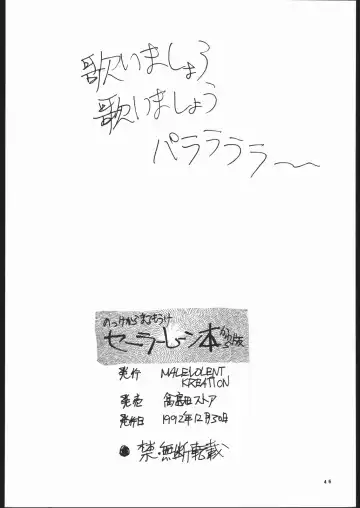 歌いましょう
歌いましょう
パラララ〜
のっけからまてもうけ
セーラームーン本
発行 MALEVOLENT KREATION
発売 高畠田ストア
発行日 1992年12月30日
●禁・無断転載
46